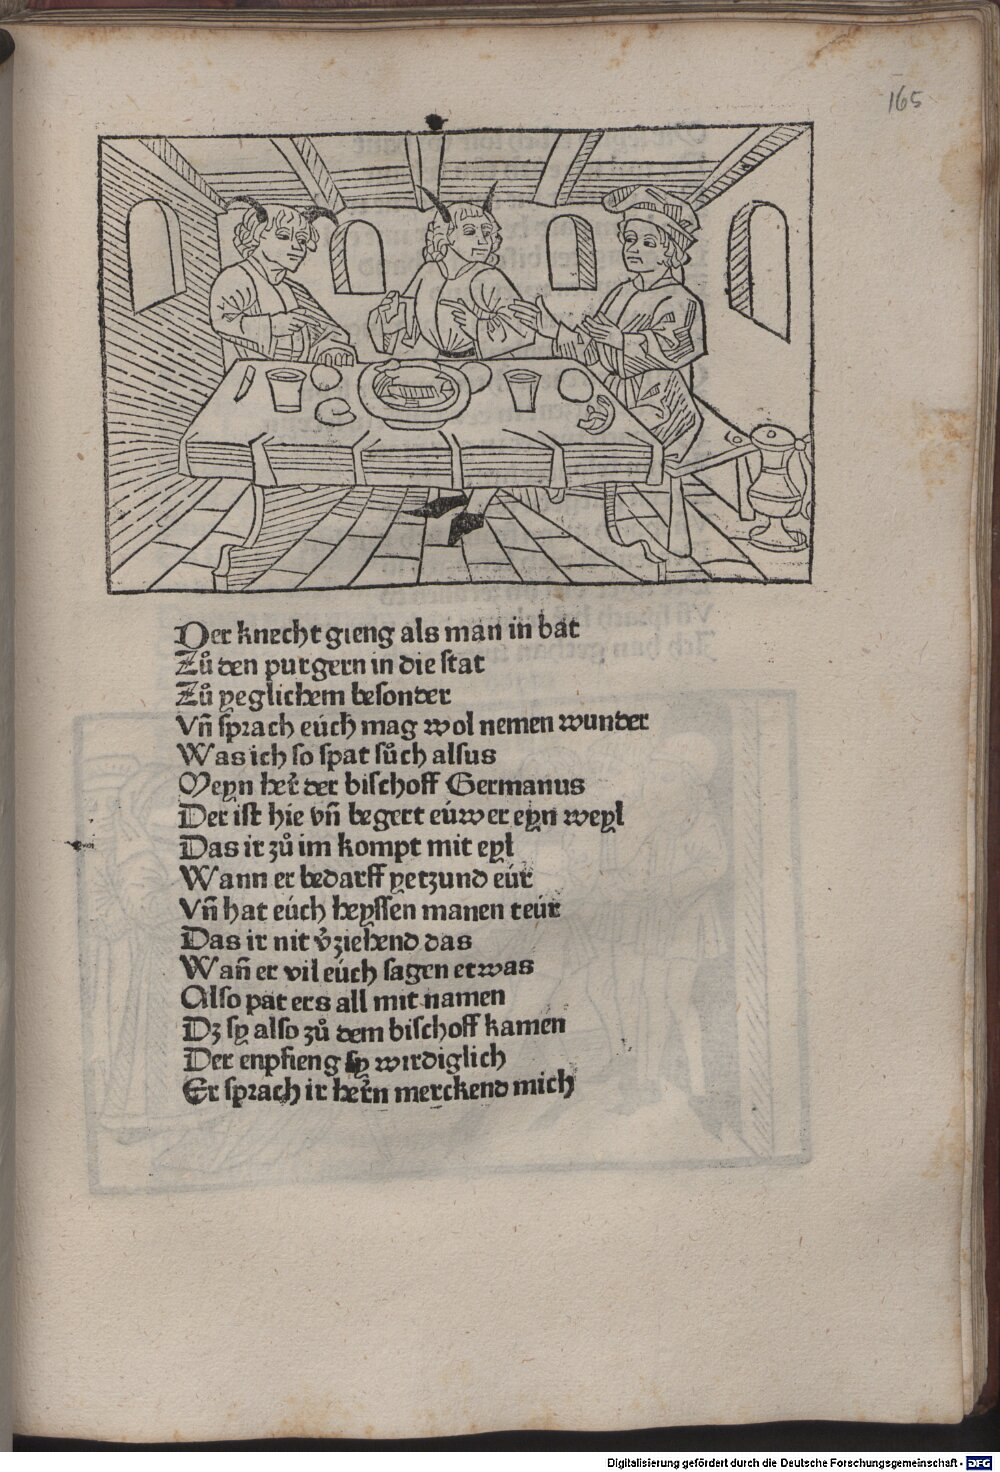 165
Der knecht gieng als man in bat
Zů den purgern in die stat
Zů yeglichem besonder
Vn̄ sprach eúch mag wol nemen wunder
Was ich so spat sůch alsus
Meyn her̃ der bischoff Germanus
Der ist hie vn̄ begert eúwer eyn weyl
Das ir zů im kompt mit eyl
Wann er bedarff yetzund eúr
Vn̄ hat eúch heyssen manen teúr
Das ir nit v̉ziehend das
Wan̄ er vil eúch sagen etwas
Also pat ers all mit namen
Dz sy also zů dem bischoff kamen
Der enpfieng sy wirdiglich
Er sprach ir her̃n merckend mich
Digitalisierung gefördert durch die Deutsche Forschungsgemeinschaft - DFG